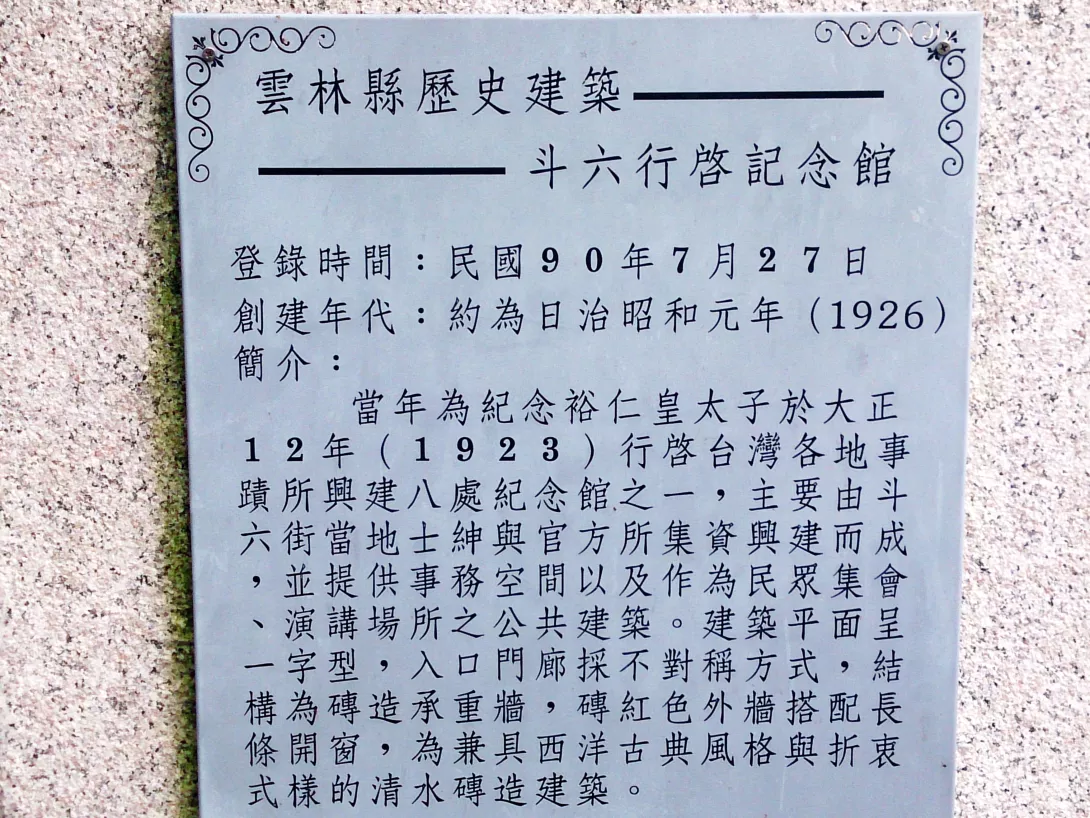 雲林縣歷史建築
斗六行啓記念館
登錄時間：民國90年7月27日
創建年代：約為日治昭和元年（1926）
簡介：
當年為紀念裕仁皇太子於大正
12年（1923）行啓台灣各地事
蹟所興建八處紀念館之一，主要由斗
六街當地士紳與官方所集資興建而成
，並提供事務空間以及作為民眾集會
、演講場所之公共建築。建築平面呈
一字型，入口門廊採不對稱方式，結
構為磚造承重牆，磚紅色外牆搭配長
條開窗，為兼具西洋古典風格與折衷
式樣的清水磚造建築。